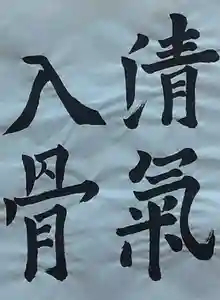 清氣
入骨